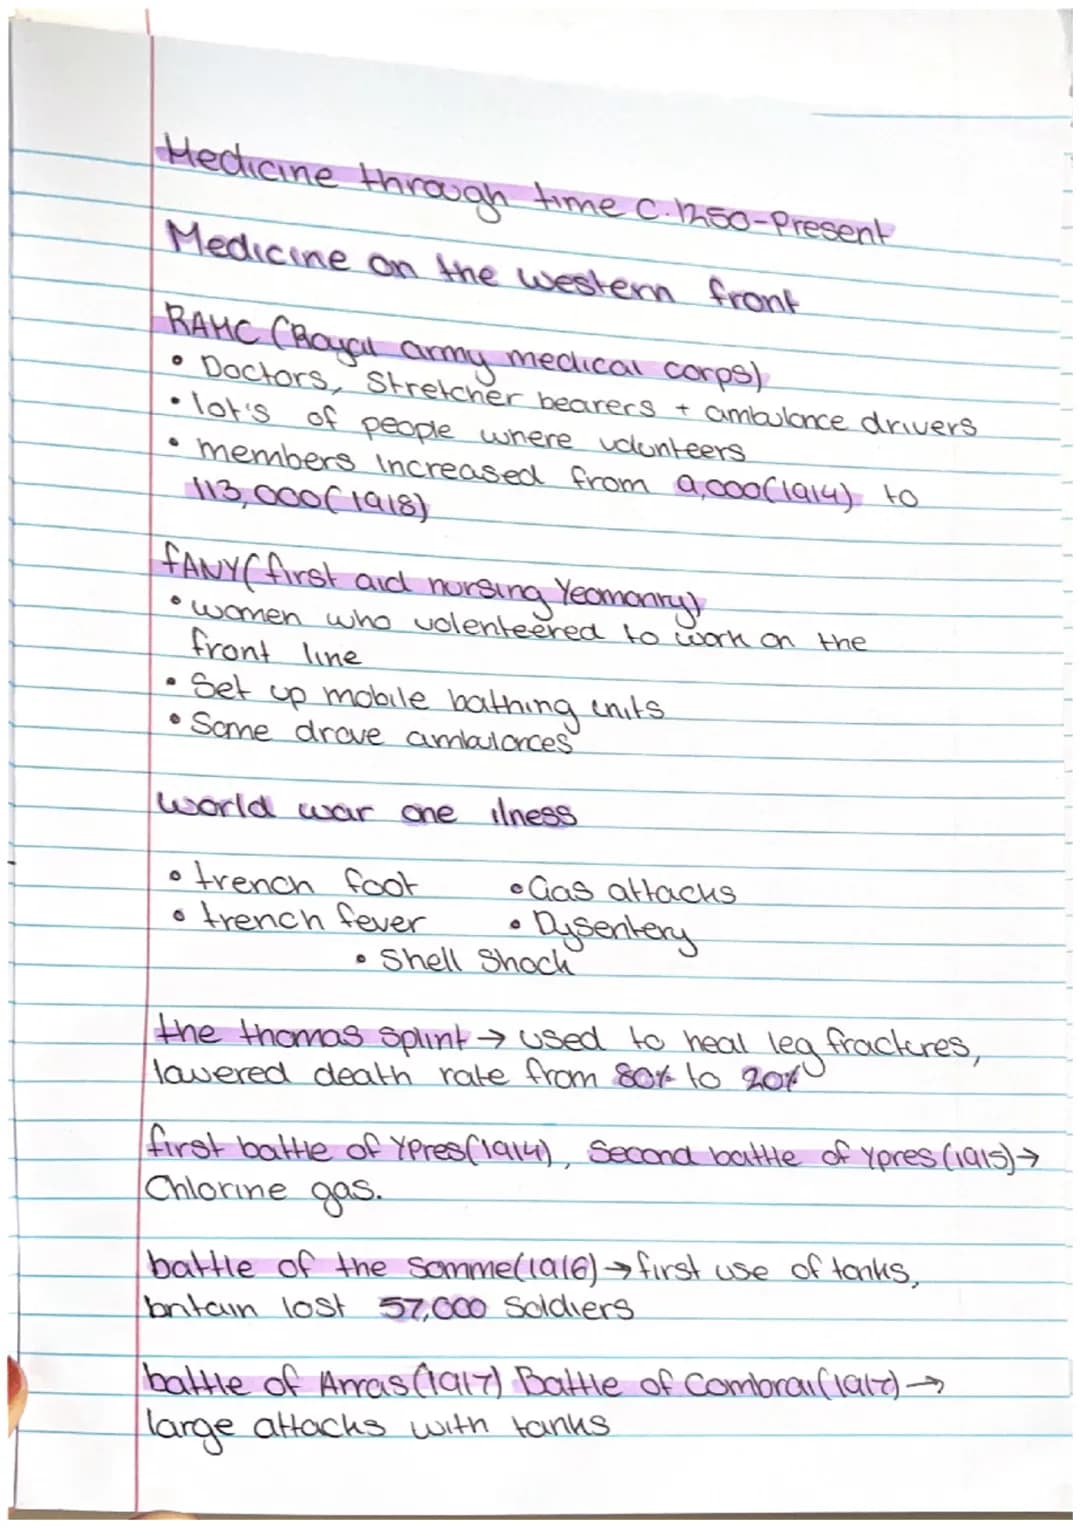 Medicine through time c.1250-Present
Medicine on the western front
RAMC (Royal army medical corps)
• Doctors, Stretcher bearers + ambulance drivers
• lot's of people where volunteers
• members increased from 9,000(1914) to
113,000(1918)
fANY(first aid nursing Yeomanry)
• women who volenteered to work on the
front line
• Set up mobile bathing units
• Some drove ambulances
world war one ilness
• trench foot • Gas attacks
• trench fever • Dysentery
• Shell Shock
the thomas splint → used to heal leg fractures,
lowered death rate from 80% to 20%
first battle of YPres(1914), Second battle of Ypres(1915)→
Chlorine gas.
battle of the Somme(1916)→first use of tanks,
britain lost 57,000 Soldiers
battle of Arras(1917) Battle of Combrai(1917)→
large attacks with tanks